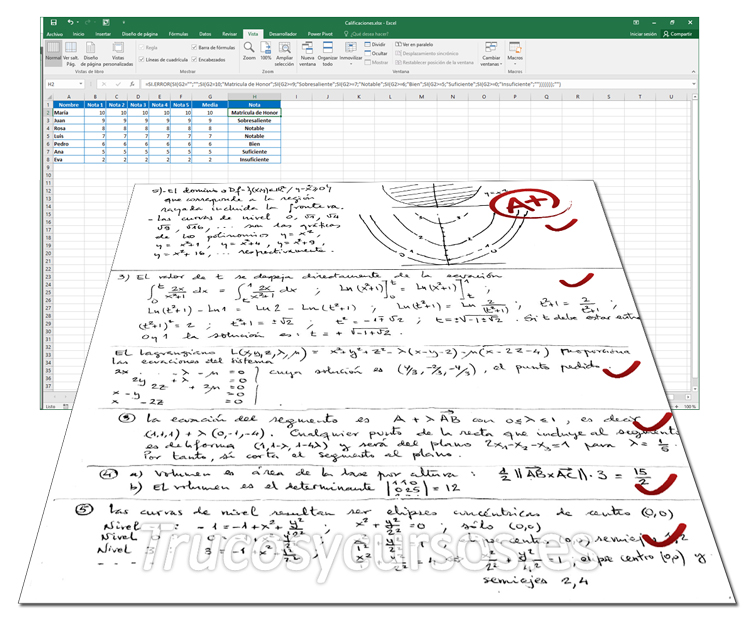 Calificaciones.xlsx - Excel
Archivo Inicio Insertar Diseño de página Fórmulas Datos Revisar Vista Desarrollador Power Pivot ¿Qué desea hacer? Iniciar sesión Compartir
Normal Ver salt. Pág. Diseño de página Vistas personalizadas
Regla Barra de fórmulas
Líneas de cuadrícula Encabezados
Zoom 100% Ampliar selección
Nueva ventana Organizar todo Inmovilizar
Dividir
Ocultar
Mostrar
Ver en paralelo
Desplazamiento sincrónico
Restablecer posición de la ventana
Cambiar ventanas
Macros
Vistas de libro Mostrar Zoom Ventana Macros
H2
A B C D E F G H I J K L M N O P Q R S T U
1 Nombre Nota 1 Nota 2 Nota 3 Nota 4 Nota 5 Media Nota
2 María 10 10 10 10 10 10 Matrícula de Honor
3 Juan 9 9 9 9 9 9 Sobresaliente
4 Rosa 8 8 8 8 8 8 Notable
5 Luis 7 7 7 7 7 7 Notable
6 Pedro 6 6 6 6 6 6 Bien
7 Ana 5 5 5 5 5 5 Suficiente
8 Eva 2 2 2 2 2 2 Insuficiente
A+
que corresponde a la región
rayada incluida la frontera.
- Las curvas de nivel 0, √1, √4
√9, √16, ... son las gráficas
de los polinomios y = x²,
y = x²+1, y = x²+4, y = x²+9,
y = x²+16, ... respectivamente.
3) El valor de t se despeja directamente de la ecuación
Ln(t²+1) - Ln1 = Ln2 - Ln(t²+1)
(t²+1)² = 2 ; t²+1 = ±√2 ; t² = -1±√2 ; t = ±√-1±√2 . Si t debe estar entre
0 y 1 la solución es: t = +√-1+√2
El Lagrangiano L(x,y,z,λ,μ) = x²+y²+z² - λ(x-y-2) - μ(x-2z-4) proporciona
las ecuaciones del sistema
2x - λ - μ = 0
2y + λ = 0
2z + 2μ = 0
cuya solución es (4/3, -2/3, -4/3), el punto pedido.
③ La ecuación del segmento es A + λ AB con 0≤λ≤1, es decir
(1,1,1) + λ (0,-1,-4). Cualquier punto de la recta que incluye al segmento
es de la forma (1,1-λ,1-4λ) y será del plano 2x₁-x₂-x₃=1 para λ = 1/5
Por tanto, sí corta el segmento al plano.
④ a) Volumen es área de la base por altura : 1/2 ||AB x AC|| · 3 = 15/2
b) El volumen es el determinante = 12
⑤ Las curvas de nivel resultan ser elipses concéntricas de centro (0,0)
Nivel : -1 = -1 + x² + y²/2² ; x² + y²/2² = 0 ; sólo (0,0)
Nivel
Nivel 3 : 3 = -1 + x² + y²/2²
centro (0,0) y
semiejes 2,4
Trucosycursos.es
Listo
100 %